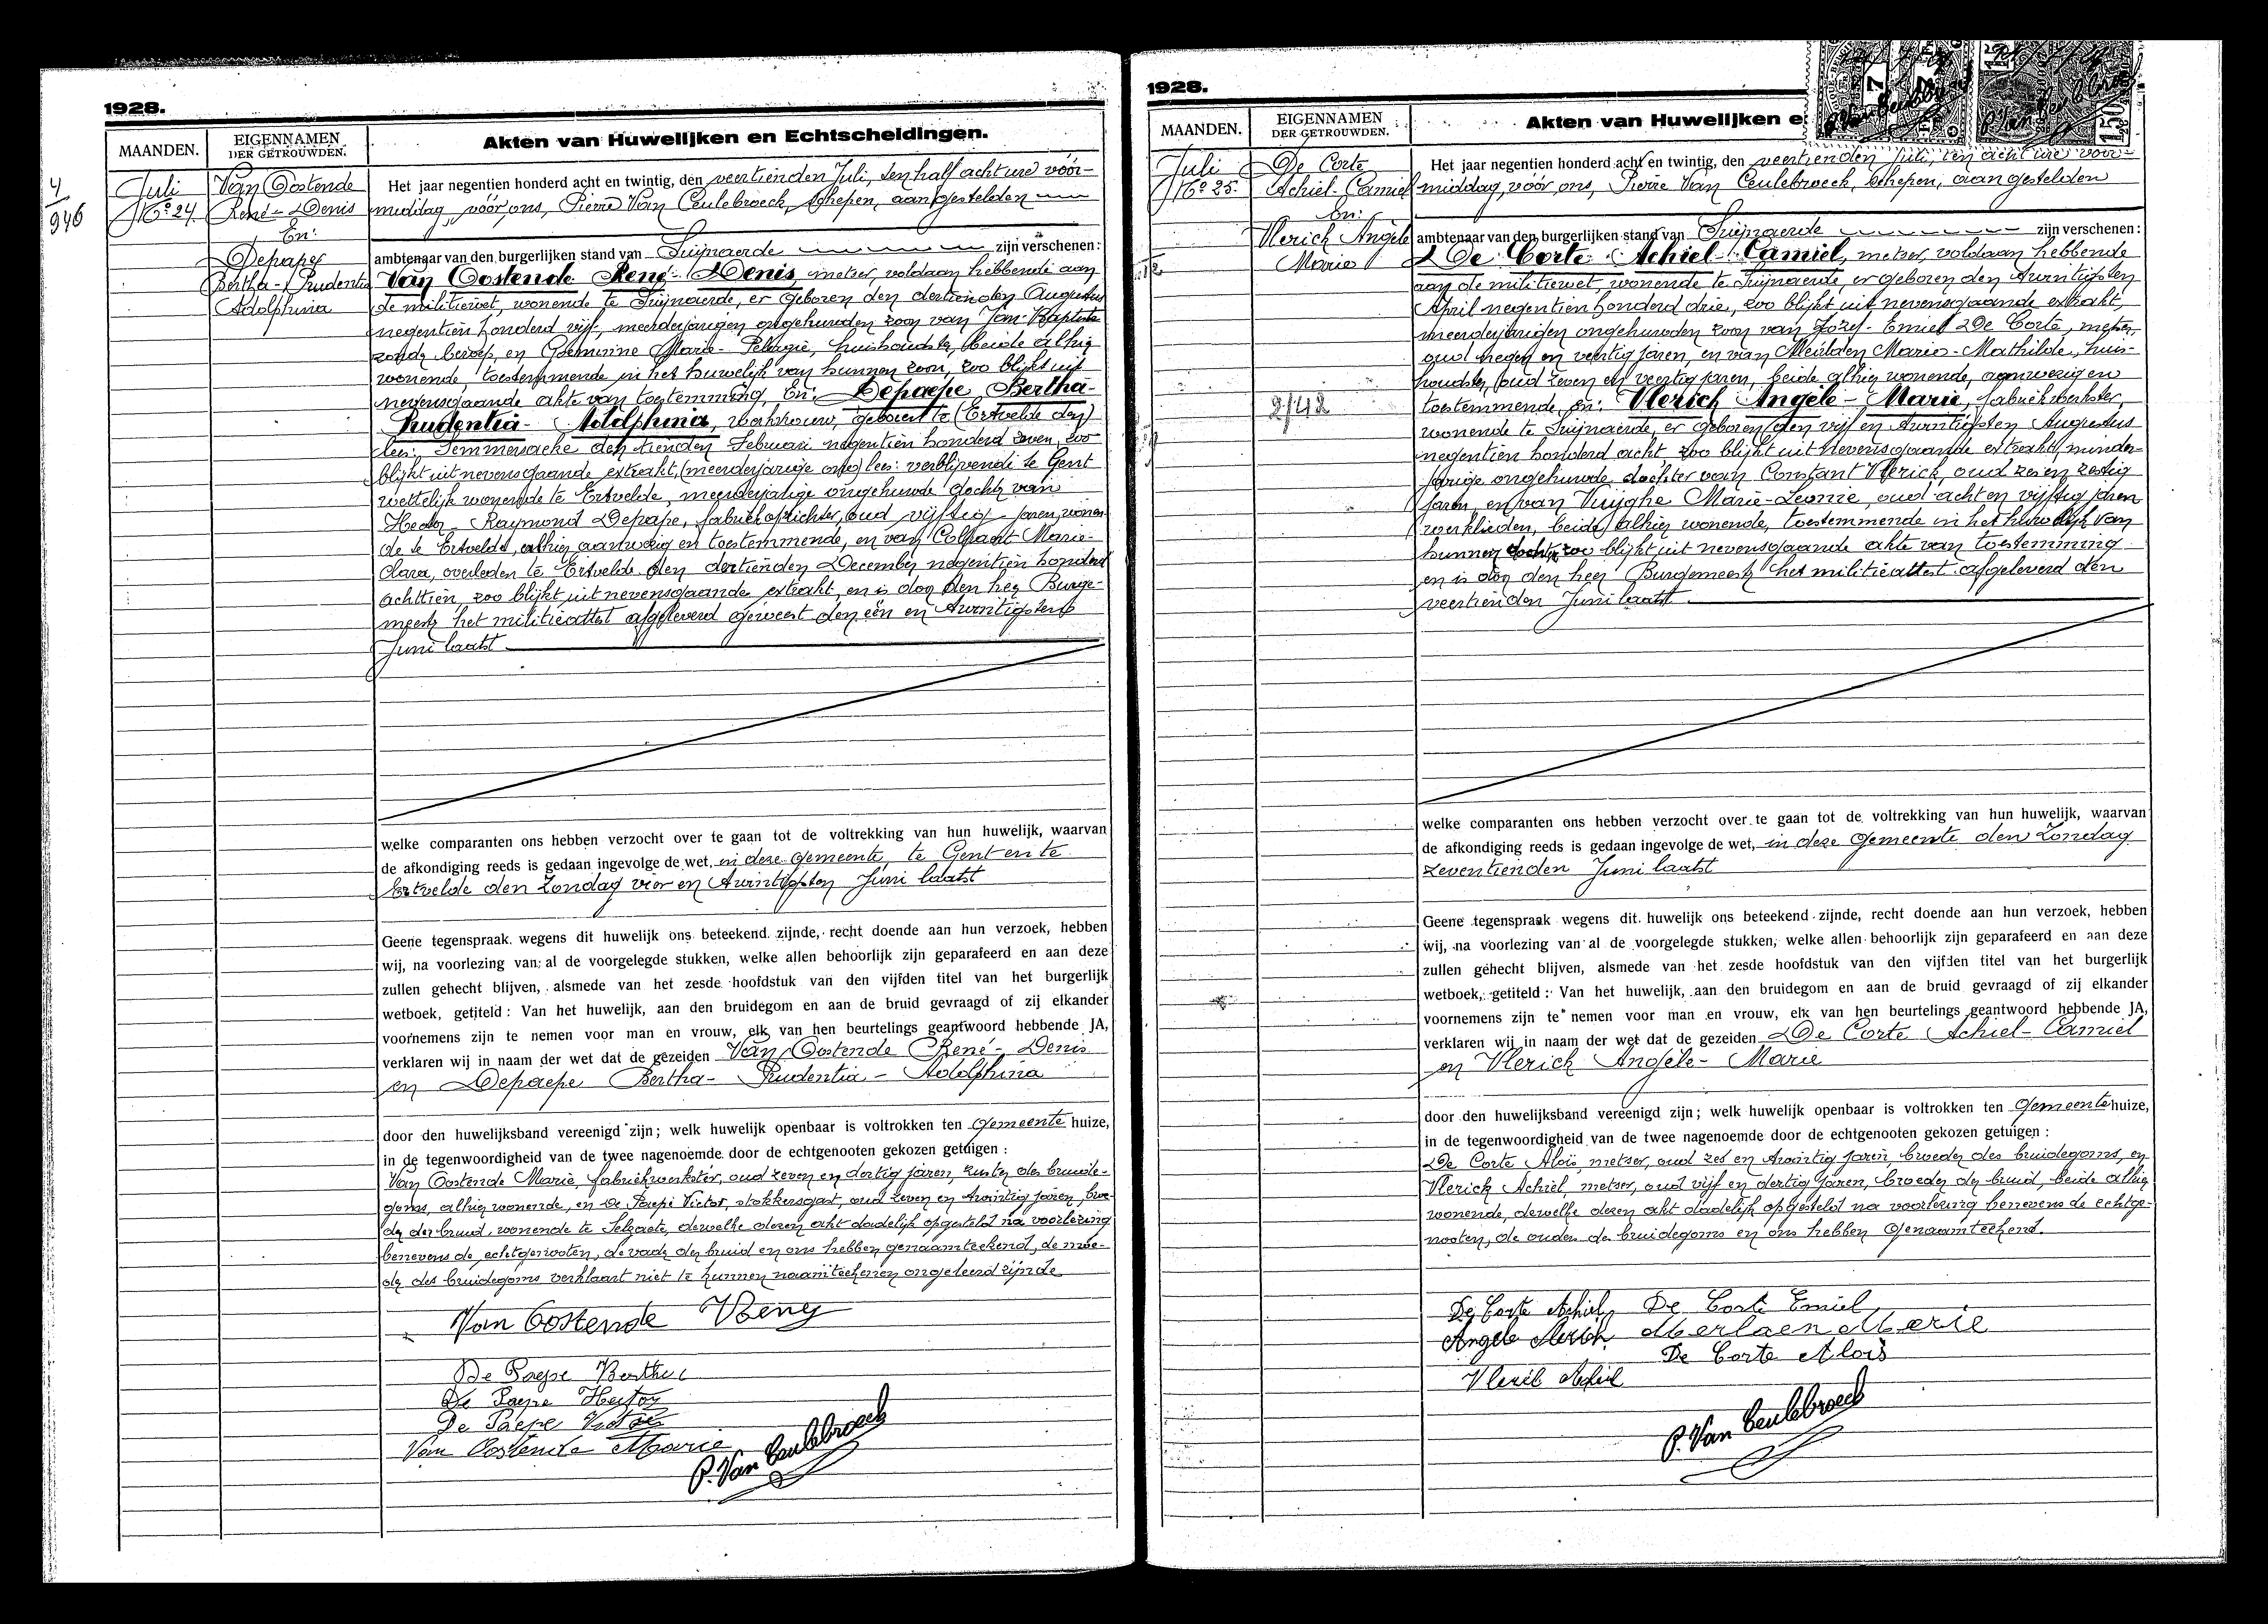 4
946
1928.
MAANDEN.
EIGENNAMEN
DER GETROUWDEN.
Akten van Huwelijken en Echtscheidingen.
Juli
No 24.
Van Oostende
René-Denis
En:
Depaepe
Bertha-Prudentia
Adolphina
Het jaar negentien honderd acht en twintig, den veertienden Juli, ten half acht ure vóór-
middag, vóór ons, Pierre Van Ceulebroeck, schepen, aangestelden
ambtenaar van den burgerlijken stand van Suijnaerde zijn verschenen:
Van Oostende René-Denis, metser, voldaan hebbende aan
de militiewet, wonende te Suijnaerde, er geboren den dertienden Augustus
negentien honderd vijf, meerderjarigen ongehuwden zoon van Jan-Baptiste
zonder beroep, en Marie-Pelagie, huishoudster, beide alhier
wonende, toestemmende in het huwelijk van hunnen zoon, zoo blijkt uit
nevensgaande akte van toestemming, En: Depaepe Bertha-
Prudentia-Adolphina, werkvrouw, geboren te (Ertvelde den)
lees: Semmersacke den tienden Februari negentien honderd zeven, zoo
blijkt uit nevensgaande extrakt, (meerderjarige ong) lees: verblijvende te Gent
wettelijk wonende te Ertvelde, meerderjarige ongehuwde dochter van
Hector Raymond Depaepe, fabriekopzichter, oud vijftig jaren, wonen-
de te Ertvelde, alhier aanwezig en toestemmende, en van Colpaert Marie-
Clara, overleden te Ertvelde den dertienden December negentien honderd
achttien, zoo blijkt uit nevensgaande extrakt, en is door den heer Burge-
meester het militieattest afgeleverd geweest den één en twintigsten
Juni laatst
welke comparanten ons hebben verzocht over te gaan tot de voltrekking van hun huwelijk, waarvan
de afkondiging reeds is gedaan ingevolge de wet, in deze gemeente, te Gent en te
Ertvelde den Zondag vier en twintigsten Juni laatst
Geene tegenspraak wegens dit huwelijk ons beteekend zijnde, recht doende aan hun verzoek, hebben
wij, na voorlezing van al de voorgelegde stukken, welke allen behoorlijk zijn geparafeerd en aan deze
zullen gehecht blijven, alsmede van het zesde hoofdstuk van den vijfden titel van het burgerlijk
wetboek, getiteld: Van het huwelijk, aan den bruidegom en aan de bruid gevraagd of zij elkander
voornemens zijn te nemen voor man en vrouw, elk van hen beurtelings geantwoord hebbende JA,
verklaren wij in naam der wet dat de gezeiden Van Oostende René-Denis
en Depaepe Bertha-Prudentia-Adolphina
door den huwelijksband vereenigd zijn; welk huwelijk openbaar is voltrokken ten Gemeente huize,
in de tegenwoordigheid van de twee nagenoemde door de echtgenooten gekozen getuigen:
Van Oostende Marie, fabriekwerkster, oud zeven en dertig jaren, zuster des bruide-
goms, alhier wonende, en De Paepe Victor, stokkersgast, oud zeven en twintig jaren, broe-
der der bruid, wonende te Selzaete, dewelke dezen akt dadelijk opgesteld na voorlezing
benevens de echtgenooten, de vader der bruid en ons hebben genaamteekend, de moe-
der des bruidegoms verklaart niet te kunnen naamteekenen ongeleerd zijnde
Van Oostende Reny
De Paepe Bertha
De Paepe Hector
De Paepe Victor
Van Oostende Marie
P. Van Ceulebroeck
1928.
MAANDEN.
EIGENNAMEN
DER GETROUWDEN.
Akten van Huwelijken e
Juli
No 25.
De Corte
Achiel-Camiel
En:
Vlerick Angèle
Marie
2/42
Het jaar negentien honderd acht en twintig, den veertienden Juli, ten acht ure voor-
middag, vóór ons, Pierre Van Ceulebroeck, schepen, aangestelden
ambtenaar van den burgerlijken stand van Suijnaerde zijn verschenen:
De Corte Achiel-Camiel, metser, voldaan hebbende
aan de militiewet, wonende te Suijnaerde, er geboren den twintigsten
April negentien honderd drie, zoo blijkt uit nevensgaande extrakt,
meerderjarigen ongehuwden zoon van Jozef-Emiel De Corte, metser,
oud negen en veertig jaren, en van Meirlaen Marie-Mathilde, huis-
houdster, oud zeven en veertig jaren, beide alhier wonende, aanwezig en
toestemmende, en: Vlerick Angèle-Marie, fabriekwerkster,
wonende te Suijnaerde, er geboren den vijf en twintigsten Augustus
negentien honderd acht, zoo blijkt uit nevensgaande extrakt, minder-
jarige ongehuwde dochter van Constant Vlerick, oud zes en zestig
jaren, en van Vuijghe Marie-Leonie, oud acht en vijftig jaren
werklieden, beide alhier wonende, toestemmende in het huwelijk van
hunner dochter, zoo blijkt uit nevensgaande akte van toestemming
en is door den heer Burgemeester het militieattest afgeleverd den
veertienden Juni laatst
welke comparanten ons hebben verzocht over te gaan tot de voltrekking van hun huwelijk, waarvan
de afkondiging reeds is gedaan ingevolge de wet, in deze Gemeente den Zondag
zeventienden Juni laatst
Geene tegenspraak wegens dit huwelijk ons beteekend zijnde, recht doende aan hun verzoek, hebben
wij, na voorlezing van al de voorgelegde stukken, welke allen behoorlijk zijn geparafeerd en aan deze
zullen gehecht blijven, alsmede van het zesde hoofdstuk van den vijfden titel van het burgerlijk
wetboek, getiteld: Van het huwelijk, aan den bruidegom en aan de bruid gevraagd of zij elkander
voornemens zijn te nemen voor man en vrouw, elk van hen beurtelings geantwoord hebbende JA,
verklaren wij in naam der wet dat de gezeiden De Corte Achiel-Camiel
en Vlerick Angèle-Marie
door den huwelijksband vereenigd zijn; welk huwelijk openbaar is voltrokken ten Gemeente huize,
in de tegenwoordigheid van de twee nagenoemde door de echtgenooten gekozen getuigen:
De Corte Aloïs, metser, oud zes en twintig jaren, broeder des bruidegoms, en
Vlerick Achiel, metser, oud vijf en dertig jaren, broeder der bruid, beide alhier
wonende, dewelke dezen akt dadelijk opgesteld na voorlezing benevens de echtge-
nooten, de ouders des bruidegoms en ons hebben genaamteekend.
De Corte Achiel, De Corte Emiel
Angele Vlerick Merlaen Marie
De Corte Alois
Vlerik Achiel
P. Van Ceulebroeck